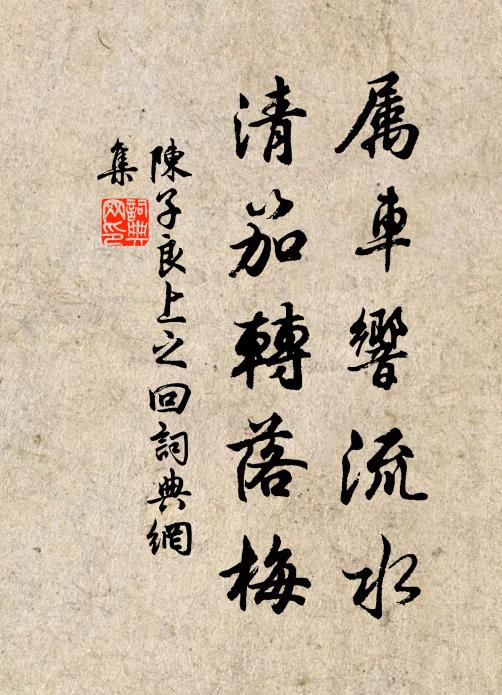 属車響流水
清笳轉落梅
陳子良上之回詞典網
集
詞典
网印